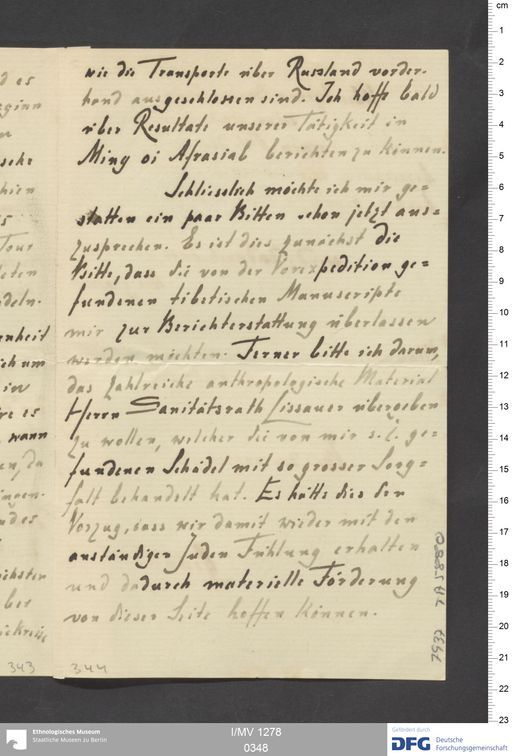 wie die Transporte über Russland vorder-
hand ausgeschlossen sind. Ich hoffe bald
über Resultate unserer Tätigkeit in
Ming oi Afrasiab berichten zu können.
Schliesslich möchte ich mir ge=
statten ein paar Bitten schon jetzt aus=
zusprechen. Es ist dies zunächst die
Bitte, dass die von der Vorexpedition ge=
fundenen tibetischen Manuscripte
mir zur Berichterstattung überlassen
werden möchten. Ferner bitte ich darum,
das zahlreiche anthropologische Material
Herrn Sanitätsrath Lissauer übergeben
zu wollen, welcher die von mir s. Z. ge=
fundenen Schädel mit so grosser Sorg=
falt behandelt hat. Es hätte dies den
Vorzug, dass wir damit wieder mit den
anständigen Juden Fühlung erhalten
und dadurch materielle Förderung
von dieser Seite hoffen können.
343
344
cm
1
2
3
4
5
6
7
8
9
10
11
12
13
14
15
16
17
18
19
20
21
22
23
Ethnologisches Museum
Staatliche Museen zu Berlin
I/MV 1278
0348
Gefördert durch
DFG Deutsche
Forschungsgemeinschaft